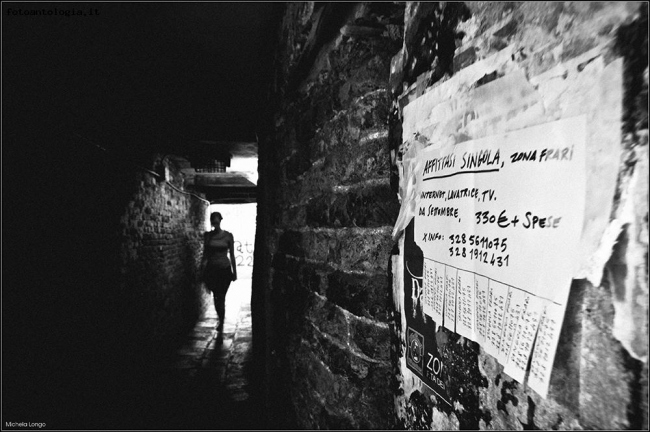 fotoantologia.it
AFFITTASI SINGOLA, ZONA FRARI
INTERNET, LAVATRICE, TV.
DA SETTEMBRE, 330€ + SPESE
X INFO: 328 5611075
328 1912431
ZO
Michela Longo